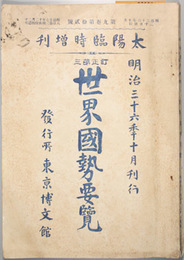 太陽臨時増刊
明治三十六年十月刊行
訂正第三
世界國勢要覧
發行所 東京博文館